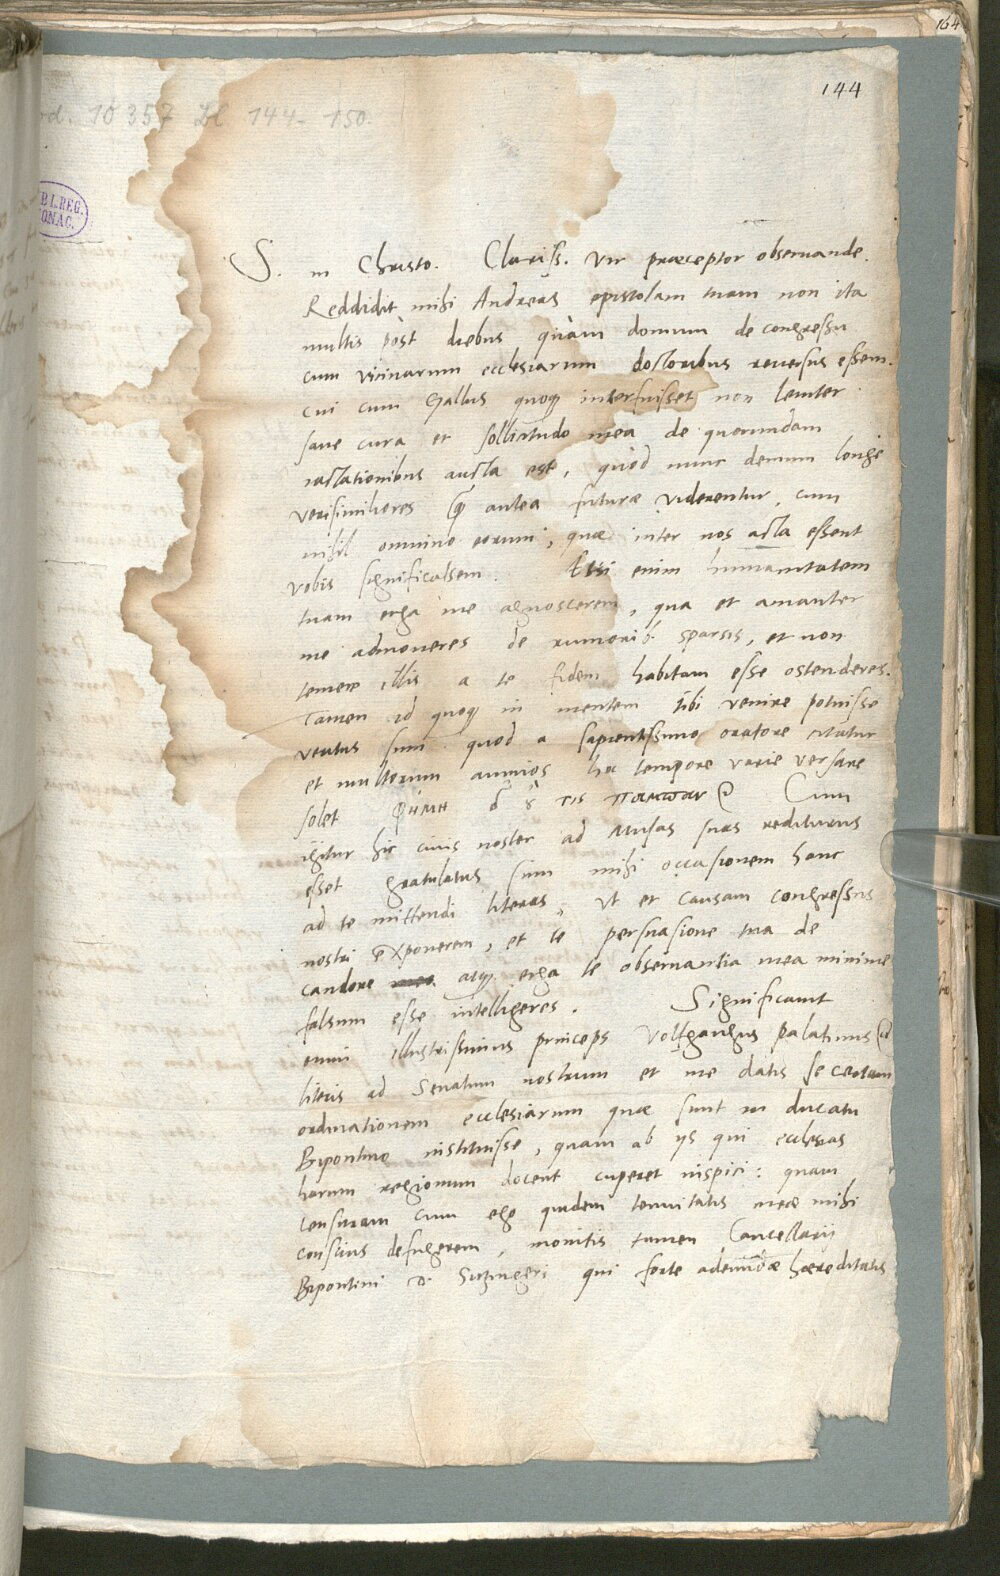 164
144
Cod. 10 357 Bl 144-150.
BI.REG.
ONAC.
S. in Christo. Clariss. vir praeceptor obseruande.
Reddidit mihi Andreas epistolam tuam non ita
multis pòst diebus quàm domum de congressu
cum vicinarum ecclesiarum doctoribus reuersus essem.
cui cum Gallus quoq interfuisset non leuiter
sane cura et sollicitudo mea de quorundam
iactationibus aucta est, quòd nunc demum longè
verisimiliores q̃ antea futurae viderentur, cum
nihil omnino eorum, quae inter nos acta essent
vobis significassem. Etsi enim humanitatem
tuam erga me agnoscerem, qua et amanter
me admoneres de rumorib. sparsis, et non
temere illis a te fidem habitam esse ostenderes.
Tamen id quoq in mentem tibi venire potuisse
veritus sum quod a sapientissimo oratore citatur
et multorum animos hoc tempore varie versare
solet Cum
igitur hic ciuis noster ad Musas suas rediturus
esset gratulatus sum mihi occasionem hanc
ad te mittendi literas, vt et causam congressus
nostri exponerem, et te persuasione tua de
candore atq erga te obseruantia mea minime
falsum esse intelligeres. Significauit
enim illustrissimus princeps Volfgangus palatinus
literis ad Senatum nostrum et me datis se certam
ordinationem ecclesiarum quae sunt in ducatu
Bipontino instituisse, quam ab ijs qui ecclesias
harum regionum docent cuperet inspici: quam
censuram cum ego quidem tenuitatis meae mihi
conscius defugerem, monitis tamen Cancellarij
Bipontini D. qui forte haereditatis